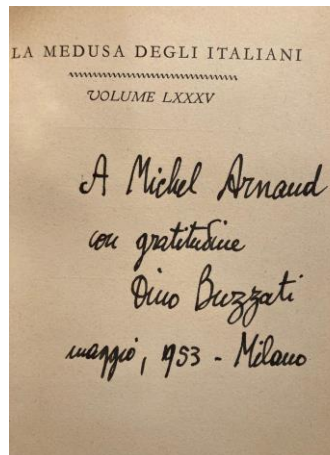 LA MEDUSA DEGLI ITALIANI
VOLUME LXXXV
A Michel Arnaud
con gratitudine
Dino Buzzati
maggio, 1953 - Milano